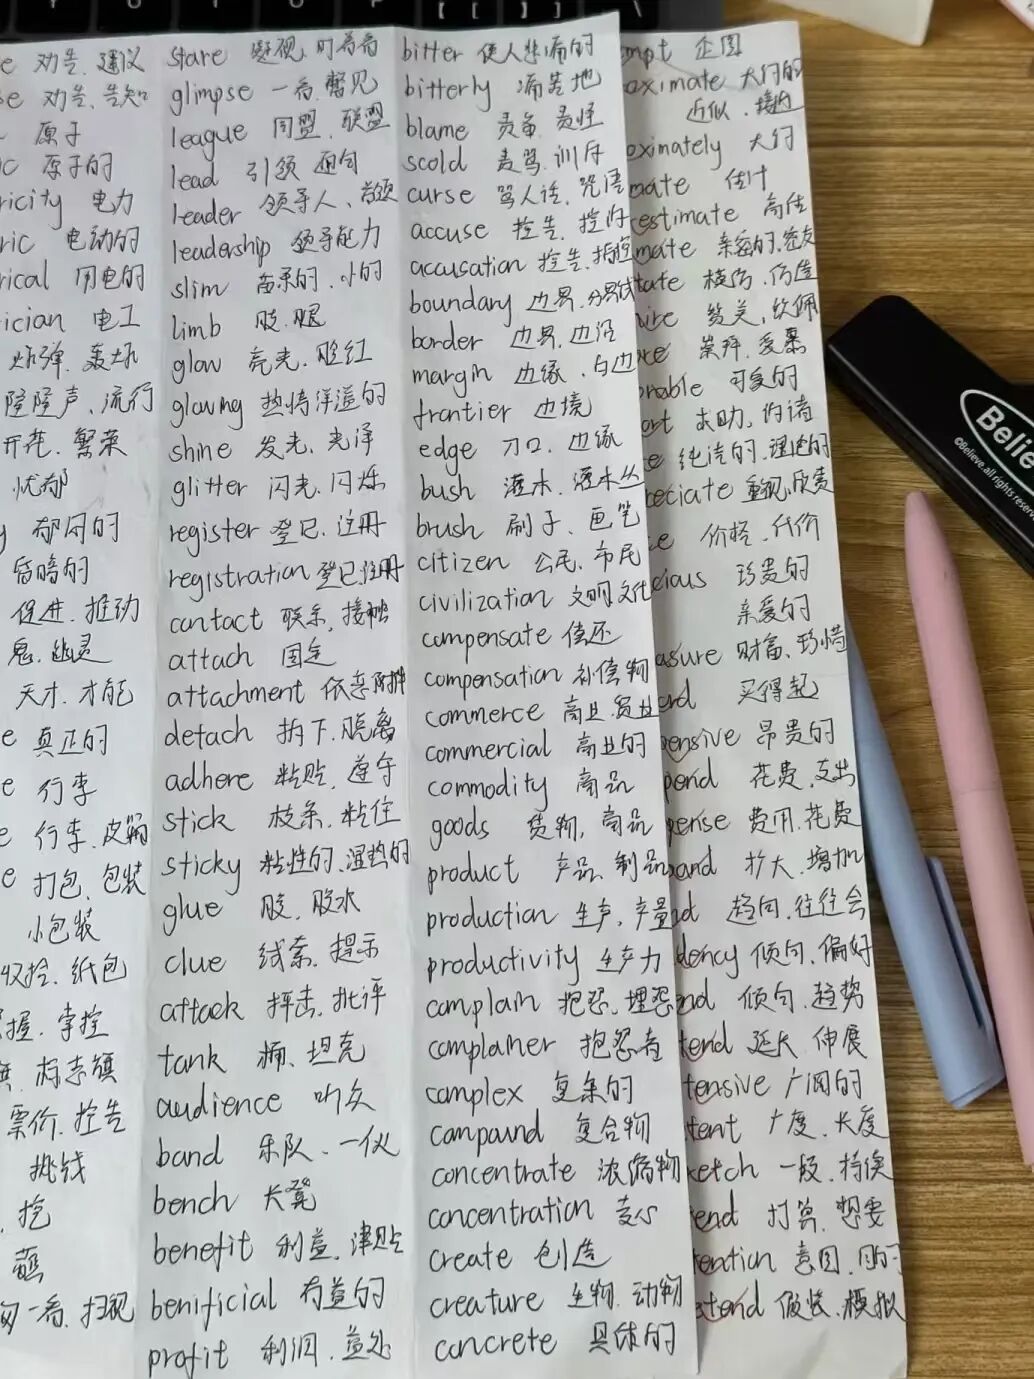 劝告、建议
劝告、告知
原子
原子的
ricity 电力
ric 电动的
rical 用电的
ician 电工
炸弹、轰炸
隆隆声、流行
开花、繁荣
忧郁
郁闷的
昏暗的
促进、推动
鬼、幽灵
天才、才能
e 真正的
e 行李
e 行李、皮箱
e 打包、包装
小包装
收拾、纸包
握、掌控
标志、旗
票价、控告
挑钱
挖
一看、扫视
stare 凝视、盯着看
glimpse 一看、瞥见
league 同盟、联盟
lead 引领 通向
leader 领导人、首领
leadership 领导能力
slim 苗条的、小的
limb 肢、腿
glow 亮光、脸红
glowing 热情洋溢的
shine 发光、光泽
glitter 闪光、闪烁
register 登记、注册
registration 登记、注册
contact 联系、接触
attach 固定
attachment 依恋 附件
detach 拆下、脱离
adhere 粘贴、遵守
stick 枝条、粘住
sticky 粘性的、湿热的
glue 胶、胶水
clue 线索、提示
attack 抨击、批评
tank 桶、坦克
audience 听众
band 乐队、一伙
bench 长凳
benefit 利益、津贴
benificial 有益的
profit 利润、益处
bitter 使人悲痛的
bitterly 痛苦地
blame 责备、责怪
scold 责骂、训斥
curse 骂人话、咒语
accuse 控告、控诉
accusation 控告、指控
boundary 边界、分界线
border 边界、边沿
margin 边缘、白边
frontier 边境
edge 刀口、边缘
bush 灌木、灌木丛
brush 刷子、画笔
citizen 公民、市民
civilization 文明 文化
compensate 偿还
compensation 补偿物
commerce 商业、贸业
commercial 商业的
commodity 商品
goods 货物、商品
product 产品、制品
production 生产、产量
productivity 生产力
complain 抱怨、埋怨
complainer 抱怨者
complex 复杂的
compound 复合物
concentrate 浓缩物
concentration 专心
create 创造
creature 生物、动物
concrete 具体的
mpt 企图
oximate 大约的
近似、接近
oximately 大约
mate 估计
estimate 高估
mate 亲密的、密友
tate 模仿、仿造
ire 赞美、钦佩
崇拜、爱慕
rable 可爱的
求助、
纯洁的、理论的
eciate 重视、欣赏
ce 价格、代价
cious 珍贵的
亲爱的
asure 财富、珍惜
rd 买得起
pensive 昂贵的
pend 花费、支出
pense 费用、花费
pand 扩大、增加
nd 趋向、往往会
dency 倾向、偏好
end 倾向、趋势
tend 延长、伸展
tensive 广阔的
tent 广度、长度
retch 一段、持续
tend 打算、想要
tention 意图、目的
etend 假装、模拟
Believe
©Believe.all rights reserve